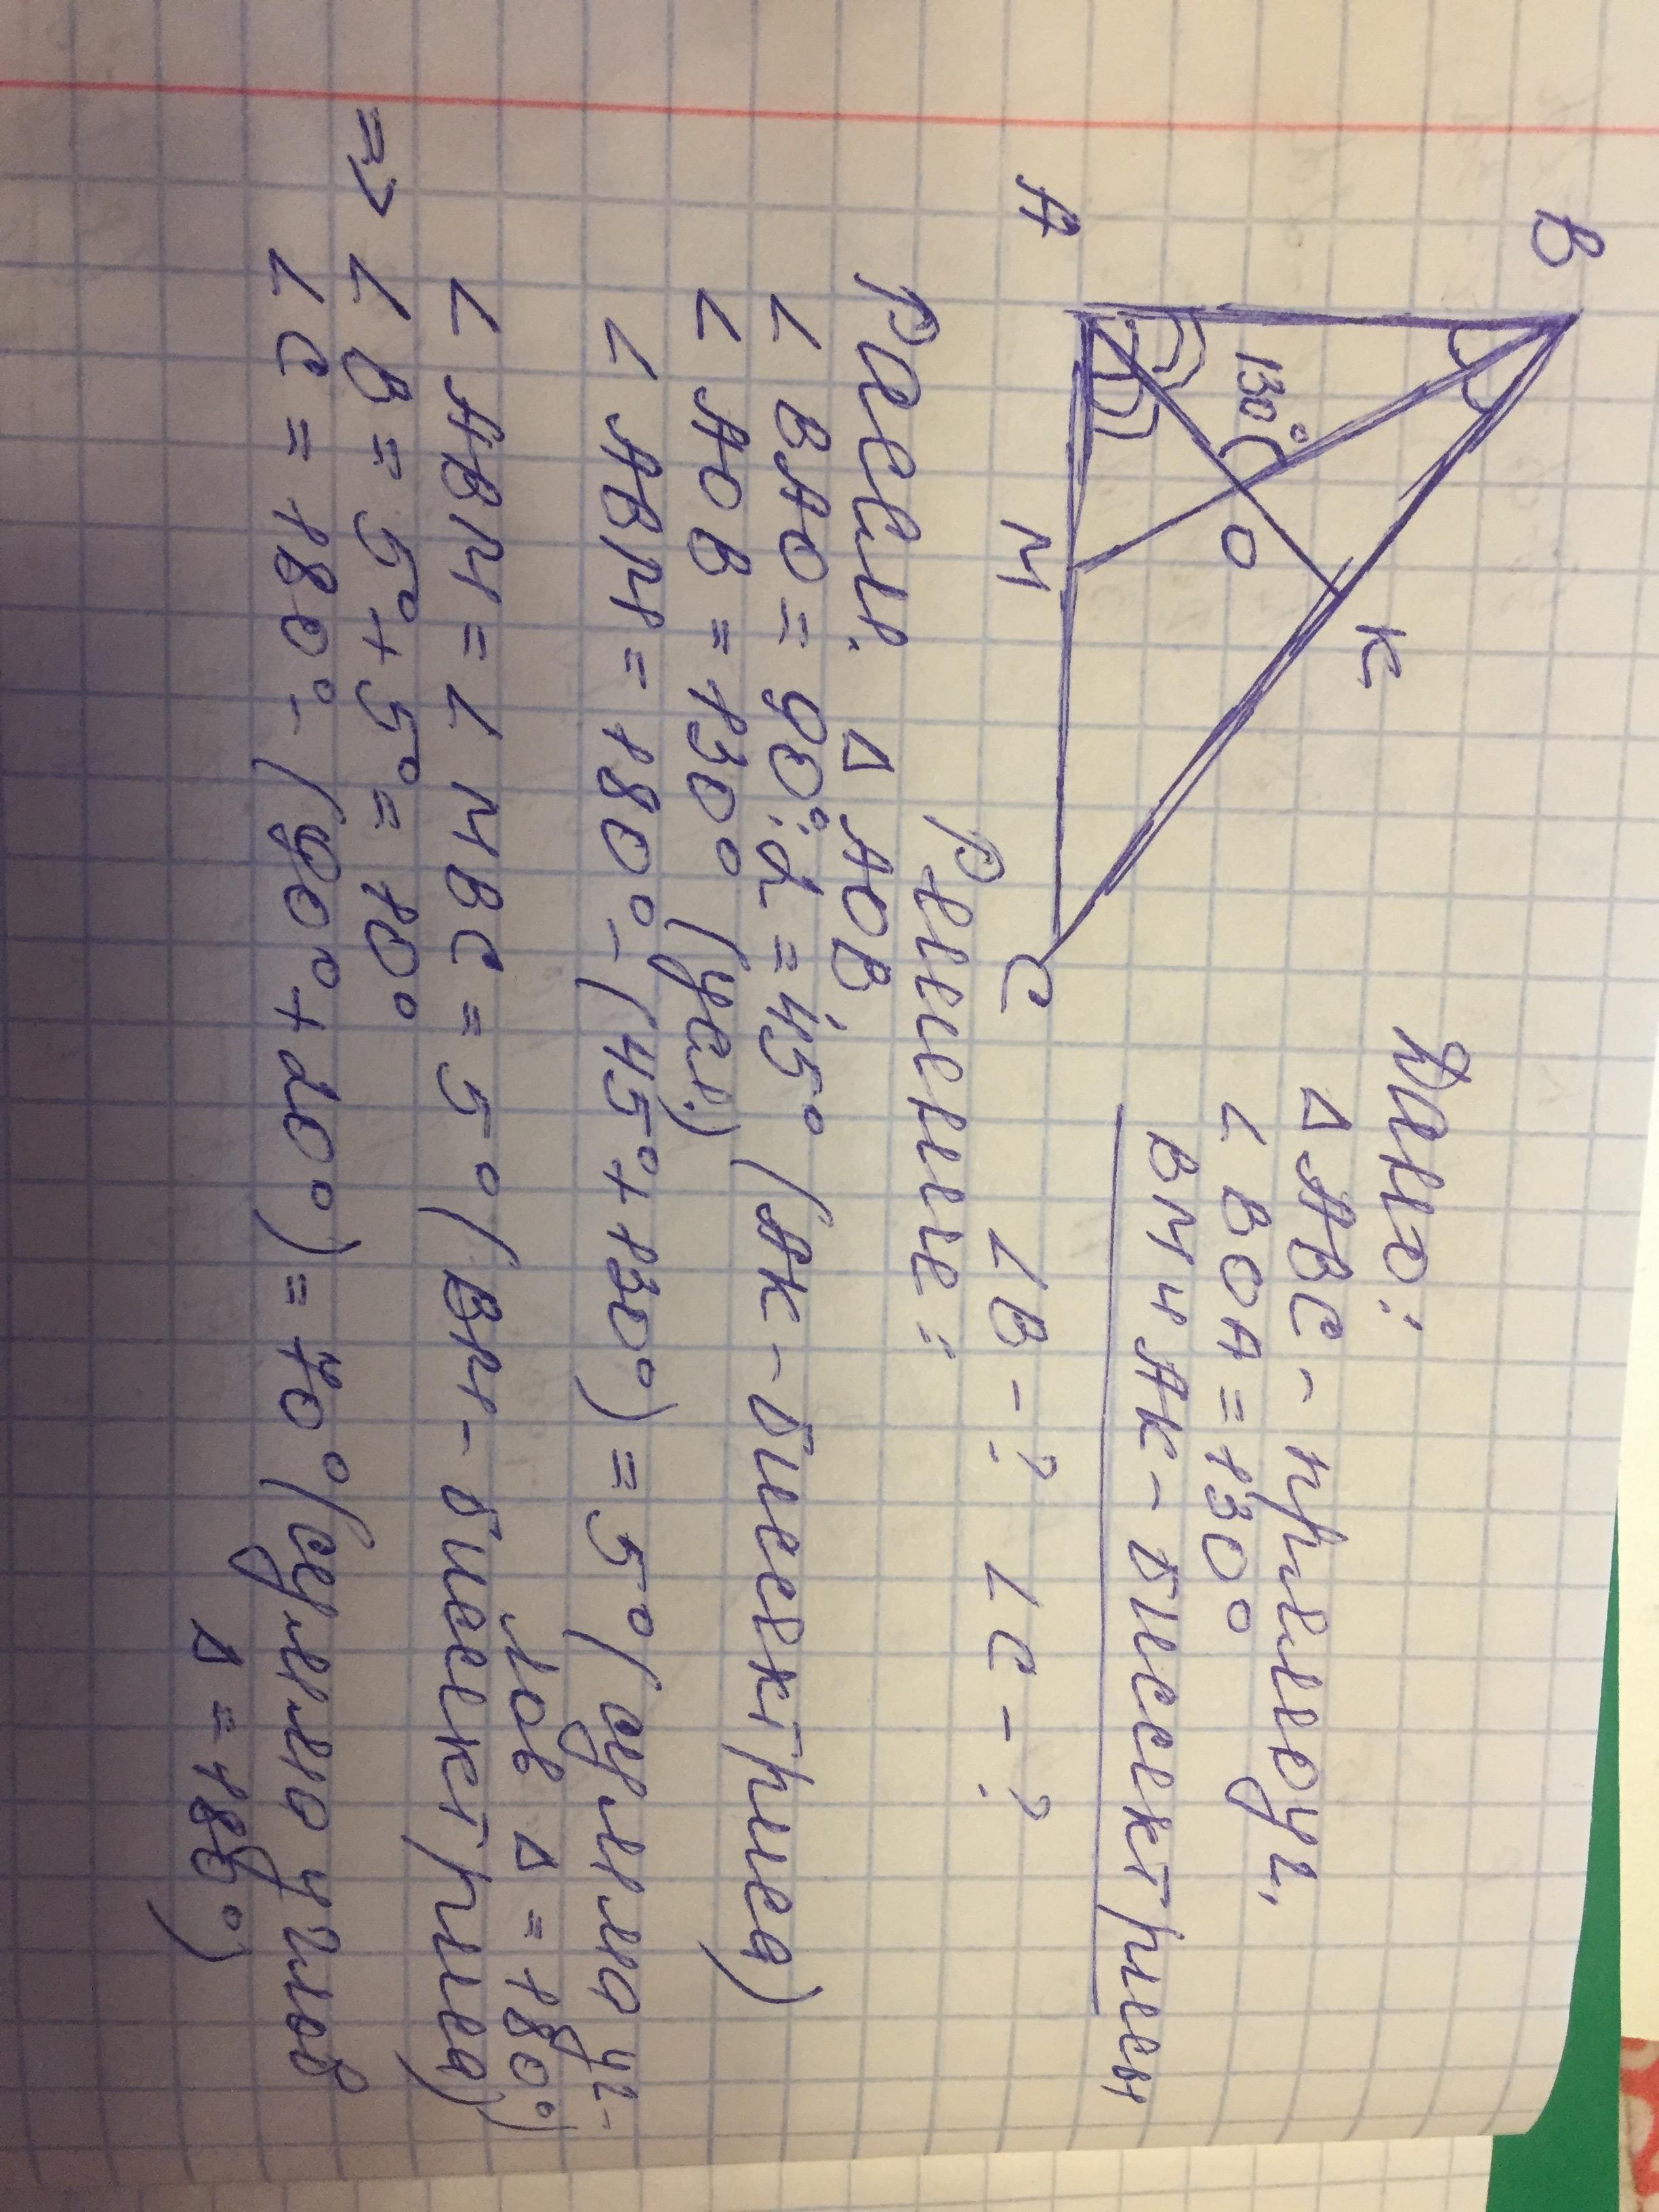 B
K
130°
O
A
M
C
Дано:
Δ ABC - прямоуг,
∠ BOA = 130°
BM и AK - биссектрисы
∠B - ? ∠C - ?
Решение:
Рассм. Δ AOB
∠ BAO = 90°:2 = 45° (AK - биссектриса)
∠ AOB = 130° (усл.)
∠ ABM = 180° - (45° + 130°) = 5° (сумма уг-
лов Δ = 180°)
∠ ABM = ∠ MBC = 5° (BM - биссектриса)
=> ∠ B = 5° + 5° = 10°
∠ C = 180° - (90° + 20°) = 70° (сумма углов
Δ = 180°)